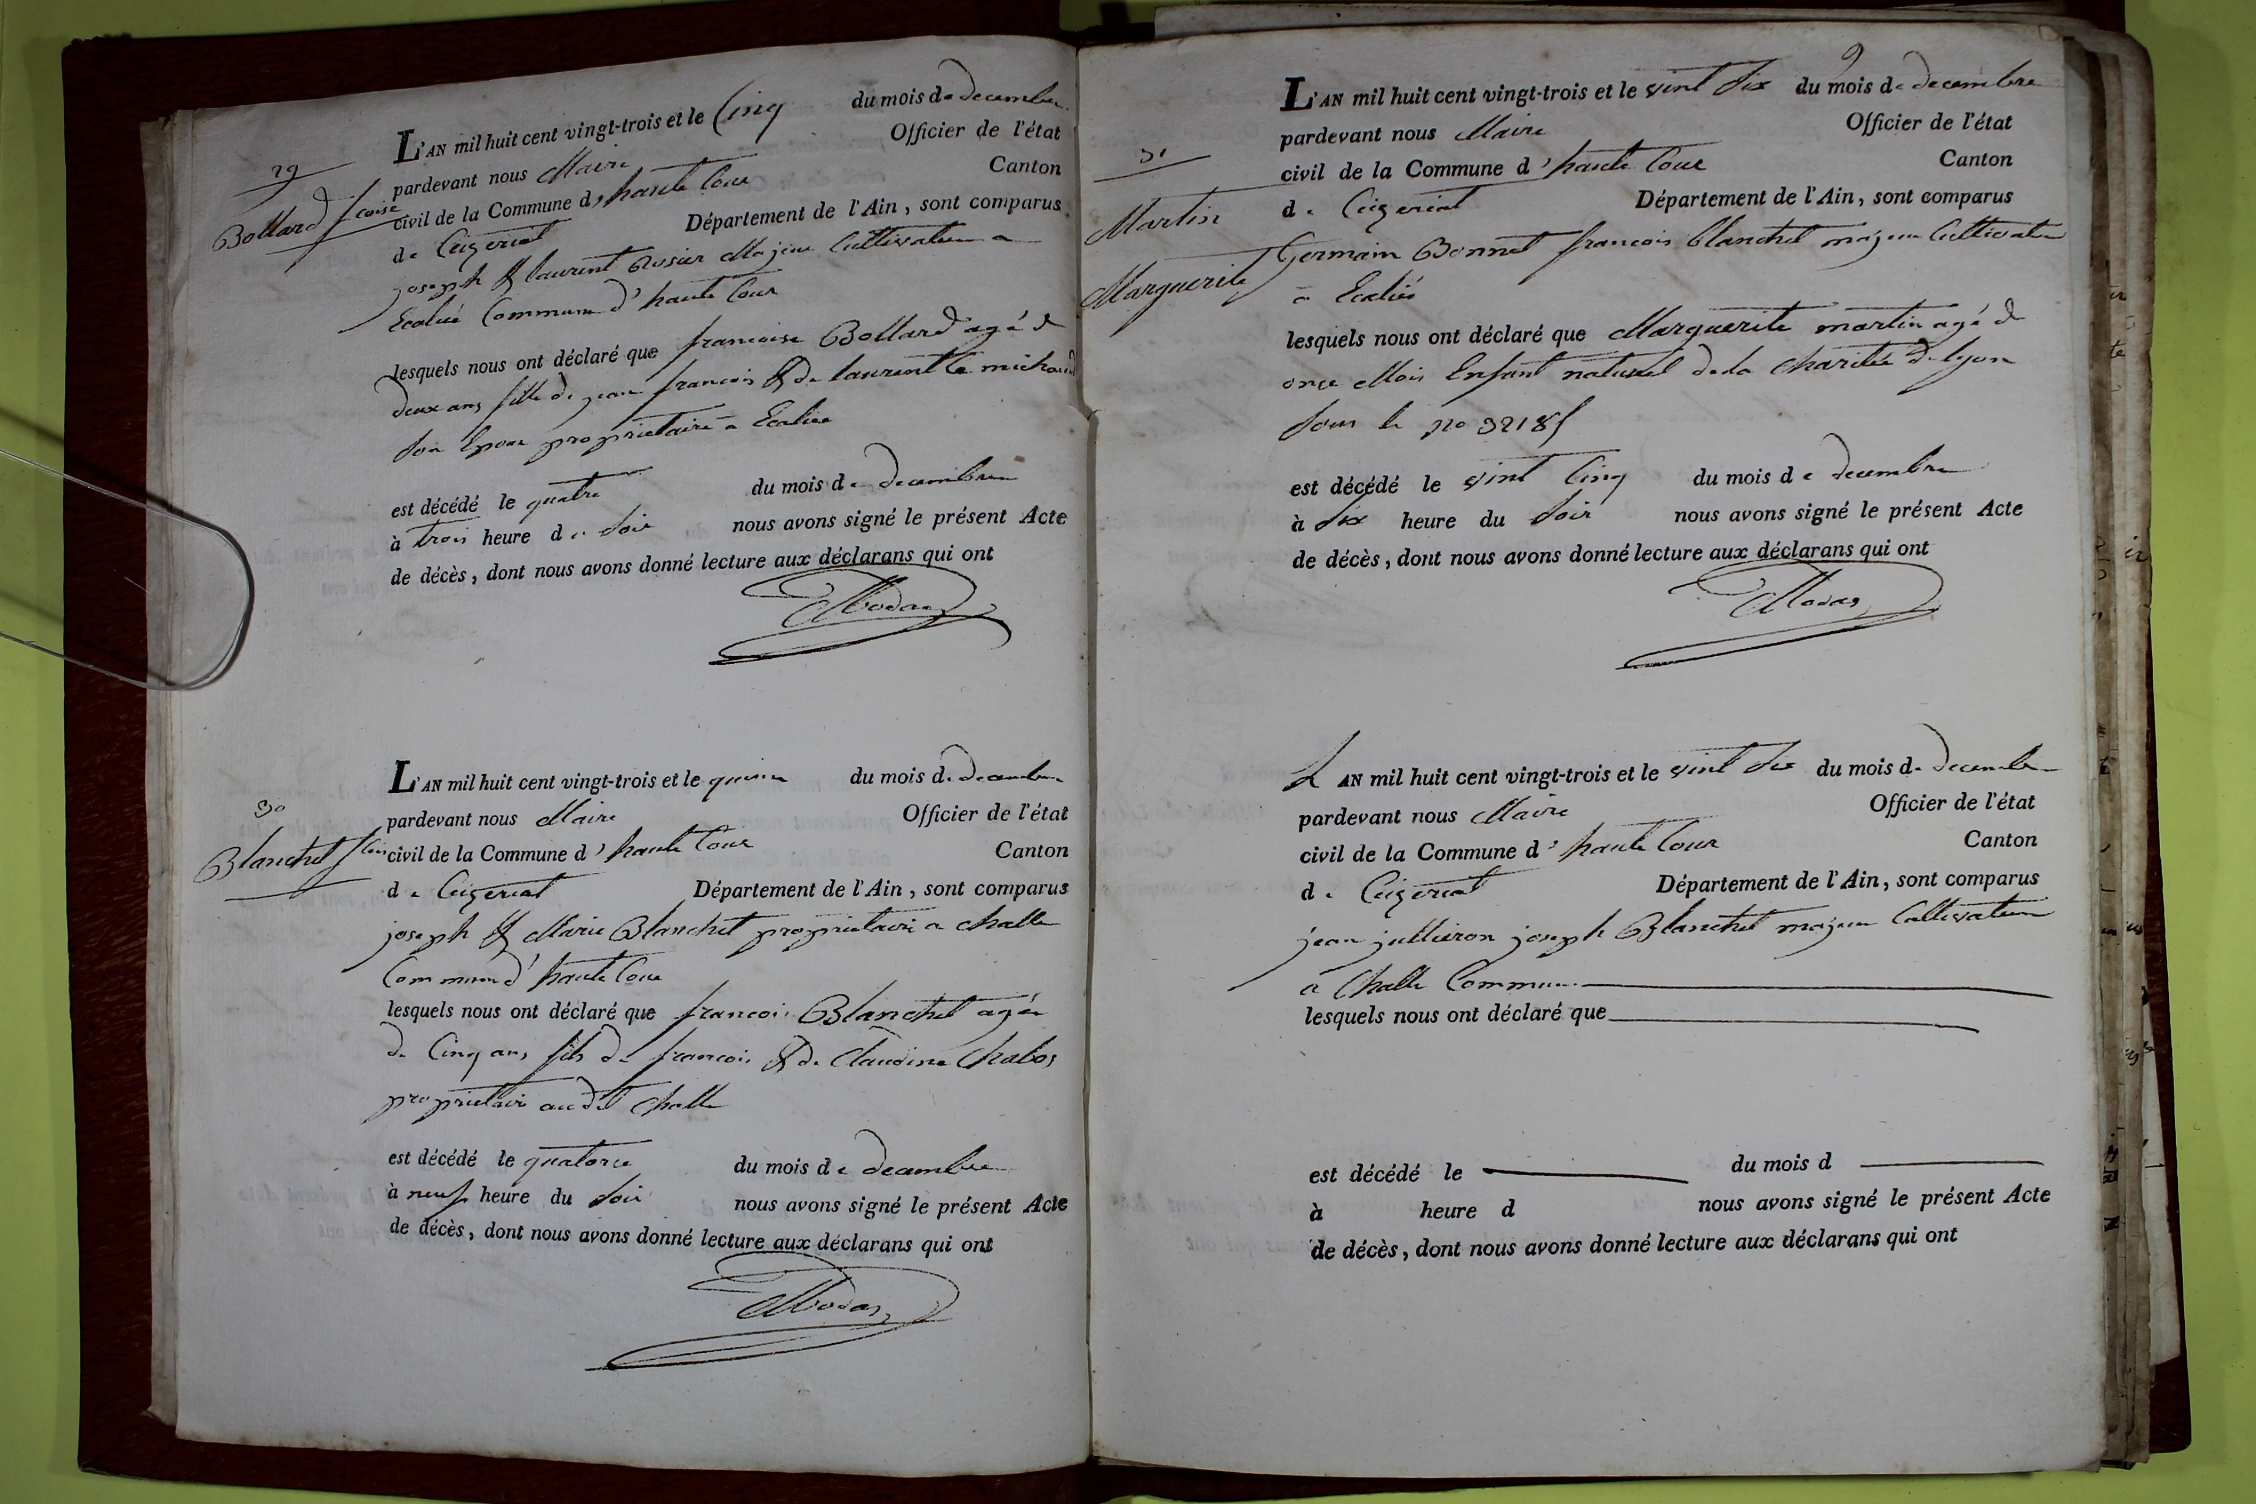 29
Bollard fcoise
L'AN mil huit cent vingt-trois et le Cinq du mois de decembre
pardevant nous Maire Officier de l'état
civil de la Commune d'haute Cour Canton
de Ceizeriat Département de l'Ain, sont comparus
joseph & laurent Rosier Majeur Cultivateur a
Commune d'haute Cour
lesquels nous ont déclaré que francoise Bollard agé d
deux ans fille de jean francois & de laurent
son Epoux proprietaire a
est décédé le quatre du mois de decembre
à trois heure du soir nous avons signé le présent Acte
de décès, dont nous avons donné lecture aux déclarans qui ont
30
Blanchet fcois
L'AN mil huit cent vingt-trois et le quinze du mois de decembre
pardevant nous Maire Officier de l'état
civil de la Commune d'haute Cour Canton
de Ceizeriat Département de l'Ain, sont comparus
joseph & Marie Blanchet proprietaire a challe
Commune d'haute Cour
lesquels nous ont déclaré que francois Blanchet agée
de Cinq ans fils de francois & de Claudine Chabos
proprietaire audit challe
est décédé le quatorze du mois de decembre
à neuf heure du soir nous avons signé le présent Acte
de décès, dont nous avons donné lecture aux déclarans qui ont
31
Martin
Marguerite
L'AN mil huit cent vingt-trois et le vint six du mois de decembre
pardevant nous Maire Officier de l'état
civil de la Commune d'haute Cour Canton
de Ceizeriat Département de l'Ain, sont comparus
Germain Bonnet francois Blanchet majeur Cultivateur
a
lesquels nous ont déclaré que Marguerite martin agé d
onze Mois Enfant naturel de la charitée de lyon
sous le no
est décédé le vint Cinq du mois de decembre
à six heure du soir nous avons signé le présent Acte
de décès, dont nous avons donné lecture aux déclarans qui ont
L'AN mil huit cent vingt-trois et le vint six du mois de decembre
pardevant nous Maire Officier de l'état
civil de la Commune d'haute Cour Canton
de Ceizeriat Département de l'Ain, sont comparus
jean jullieron joseph Blanchet majeur Cultivateur
a Challe Commune
lesquels nous ont déclaré que
est décédé le du mois d
à heure d nous avons signé le présent Acte
de décès, dont nous avons donné lecture aux déclarans qui ont